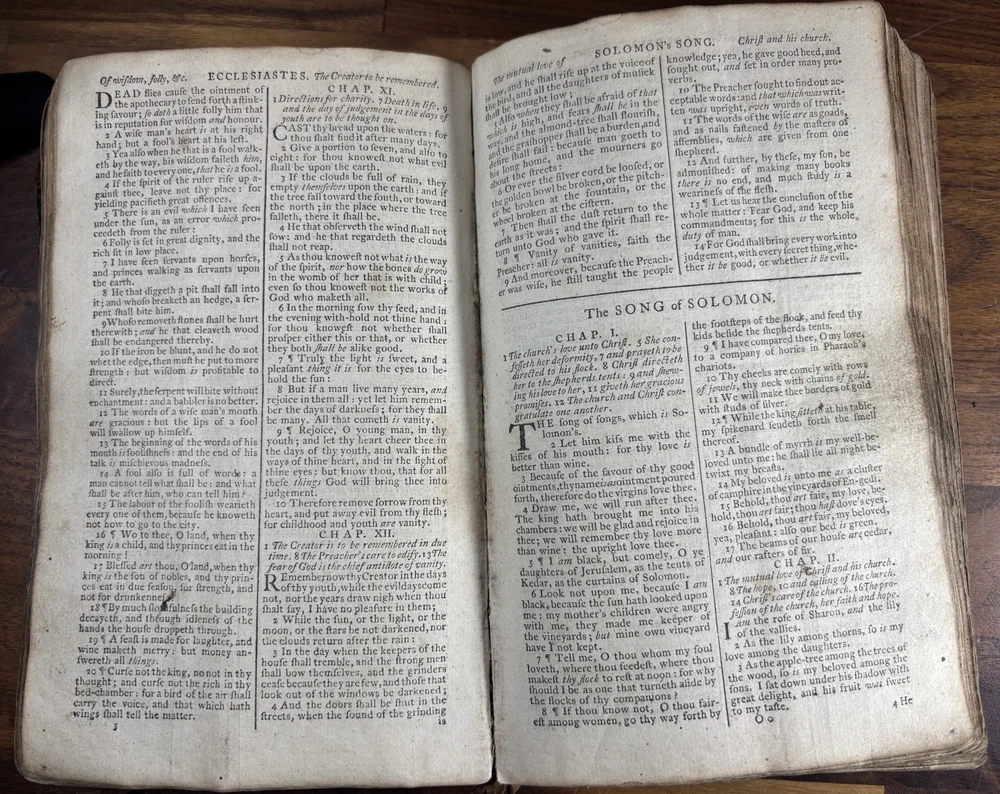 Of wiſdom, folly, &c. ECCLESIASTES. The Creator to be remembered.
DEAD flies cauſe the ointment of
the apothecary to ſend forth a ſtink-
ing ſavour; ſo doth a little folly him that
is in reputation for wiſdom and honour.
2 A wiſe man's heart is at his right
hand; but a fool's heart at his left.
3 Yea alſo when he that is a fool walk-
eth by the way, his wiſdom faileth him,
and he ſaith to every one, that he is a fool.
4 If the ſpirit of the ruler riſe up a-
gainſt thee, leave not thy place: for
yielding pacifieth great offences.
5 There is an evil which I have ſeen
under the ſun, as an error which pro-
ceedeth from the ruler:
6 Folly is ſet in great dignity, and the
rich ſit in low place.
7 I have ſeen ſervants upon horſes,
and princes walking as ſervants upon
the earth.
8 He that diggeth a pit ſhall fall into
it; and whoſo breaketh an hedge, a ſer-
pent ſhall bite him.
9 Whoſo removeth ſtones ſhall be hurt
therewith; and he that cleaveth wood
ſhall be endangered thereby.
10 If the iron be blunt, and he do not
whet the edge, then muſt he put to more
ſtrength: but wiſdom is profitable to
direct.
11 Surely, the ſerpent will bite without
enchantment: and a babbler is no better.
12 The words of a wiſe man's mouth
are gracious: but the lips of a fool
will ſwallow up himſelf.
13 The beginning of the words of his
mouth is fooliſhneſs: and the end of his
talk is miſchievous madneſs.
14 A fool alſo is full of words: a
man cannot tell what ſhall be: and what
ſhall be after him, who can tell him?
15 The labour of the fooliſh wearieth
every one of them, becauſe he knoweth
not how to go to the city.
16 ¶ Wo to thee, O land, when thy
king is a child, and thy princes eat in the
morning!
17 Bleſſed art thou, O land, when thy
king is the ſon of nobles, and thy prin-
ces eat in due ſeaſon, for ſtrength, and
not for drunkenneſs!
18 ¶ By much ſlothfulneſs the building
decayeth, and through idleneſs of the
hands the houſe droppeth through.
19 ¶ A feaſt is made for laughter, and
wine maketh merry: but money an-
ſwereth all things.
20 ¶ Curſe not the king, no not in thy
thought; and curſe not the rich in thy
bed-chamber: for a bird of the air ſhall
carry the voice, and that which hath
wings ſhall tell the matter.
3
CHAP. XI.
1 Directions for charity. 7 Death in life, 9
and the day of judgement in the days of
youth are to be thought on.
CAST thy bread upon the waters: for
thou ſhalt find it after many days.
2 Give a portion to ſeven, and alſo to
eight: for thou knoweſt not what evil
ſhall be upon the earth.
3 If the clouds be full of rain, they
empty themſelves upon the earth: and if
the tree fall toward the ſouth, or toward
the north; in the place where the tree
falleth, there it ſhall be.
4 He that obſerveth the wind ſhall not
ſow: and he that regardeth the clouds
ſhall not reap.
5 As thou knoweſt not what is the way
of the ſpirit, nor how the bones do grow
in the womb of her that is with child;
even ſo thou knoweſt not the works of
God who maketh all.
6 In the morning ſow thy ſeed, and in
the evening with-hold not thine hand:
for thou knoweſt not whether ſhall
proſper either this or that, or whether
they both ſhall be alike good.
7 ¶ Truly the light is ſweet, and a
pleaſant thing it is for the eyes to be-
hold the ſun:
8 But if a man live many years, and
rejoice in them all: yet let him remem-
ber the days of darkneſs; for they ſhall
be many. All that cometh is vanity.
9 ¶ Rejoice, O young man, in thy
youth; and let thy heart cheer thee in
the days of thy youth, and walk in the
ways of thine heart, and in the ſight of
thine eyes: but know thou, that for all
theſe things God will bring thee into
judgement.
10 Therefore remove ſorrow from thy
heart, and put away evil from thy fleſh;
for childhood and youth are vanity.
CHAP. XII.
1 The Creator is to be remembered in due
time. 8 The Preacher's care to edify. 13 The
fear of God is the chief antidote of vanity.
REmember now thy Creator in the days
of thy youth, while the evil days come
not, nor the years draw nigh when thou
ſhalt ſay, I have no pleaſure in them;
2 While the ſun, or the light, or the
moon, or the ſtars be not darkened, nor
the clouds return after the rain:
3 In the day when the keepers of the
houſe ſhall tremble, and the ſtrong men
ſhall bow themſelves, and the grinders
ceaſe becauſe they are few, and thoſe that
look out of the windows be darkened;
4 And the doors ſhall be ſhut in the
ſtreets, when the ſound of the grinding
is
The mutual love of SOLOMON's SONG. Chriſt and his church.
is low, and he ſhall riſe up at the voice of
the bird, and all the daughters of muſick
ſhall be brought low;
5 Alſo when they ſhall be afraid of that
which is high, and fears ſhall be in the
way, and the almond-tree ſhall flouriſh,
and the graſhopper ſhall be a burden, and
deſire ſhall fail: becauſe man goeth to
his long home, and the mourners go
about the ſtreets:
6 Or ever the ſilver cord be looſed, or
the golden bowl be broken, or the pitch-
er be broken at the fountain, or the
wheel broken at the ciſtern.
7 Then ſhall the duſt return to the
earth as it was; and the ſpirit ſhall re-
turn unto God who gave it.
8 ¶ Vanity of vanities, ſaith the
Preacher: all is vanity.
9 And moreover, becauſe the Preach-
er was wiſe, he ſtill taught the people
knowledge; yea, he gave good heed, and
ſought out, and ſet in order many pro-
verbs.
10 The Preacher ſought to find out ac-
ceptable words: and that which was writ-
ten was upright, even words of truth.
11 The words of the wiſe are as goads,
and as nails faſtened by the maſters of
aſſemblies, which are given from one
ſhepherd.
12 And further, by theſe, my ſon, be
admoniſhed: of making many books
there is no end, and much ſtudy is a
wearineſs of the fleſh.
13 ¶ Let us hear the concluſion of the
whole matter: Fear God, and keep his
commandments; for this is the whole
duty of man.
14 For God ſhall bring every work into
judgement, with every ſecret thing, whe-
ther it be good, or whether it be evil.
The SONG of SOLOMON.
CHAP. I.
1 The church's love unto Chriſt. 5 She con-
feſſeth her deformity, 7 and prayeth to be
directed to his flock. 8 Chriſt directeth
her to the ſhepherds tents: 9 and ſhew-
ing his love to her, 11 giveth her gracious
promiſes. 12 The church and Chriſt con-
gratulate one another.
THE ſong of ſongs, which is So-
lomon's.
2 Let him kiſs me with the
kiſſes of his mouth: for thy love is
better than wine.
3 Becauſe of the ſavour of thy good
ointments, thy name is as ointment poured
forth, therefore do the virgins love thee.
4 Draw me, we will run after thee.
The king hath brought me into his
chambers: we will be glad and rejoice in
thee; we will remember thy love more
than wine: the upright love thee.
5 ¶ I am black, but comely, O ye
daughters of Jeruſalem, as the tents of
Kedar, as the curtains of Solomon.
6 Look not upon me, becauſe I am
black, becauſe the ſun hath looked upon
me: my mother's children were angry
with me, they made me keeper of
the vineyards; but mine own vineyard
have I not kept.
7 ¶ Tell me, O thou whom my ſoul
loveth, where thou feedeſt, where thou
makeſt thy flock to reſt at noon: for why
ſhould I be as one that turneth aſide by
the flocks of thy companions?
8 ¶ If thou know not, O thou fair-
eſt among women, go thy way forth by
the footſteps of the flock, and feed thy
kids beſide the ſhepherds tents.
9 ¶ I have compared thee, O my love,
to a company of horſes in Pharaoh's
chariots.
10 Thy cheeks are comely with rows
of jewels, thy neck with chains of gold.
11 We will make thee borders of gold
with ſtuds of ſilver.
12 ¶ While the king ſitteth at his table,
my ſpikenard ſendeth forth the ſmell
thereof.
13 A bundle of myrrh is my well-be-
loved unto me: he ſhall lie all night be-
twixt my breaſts.
14 My beloved is unto me as a cluſter
of camphire in the vineyards of En-gedi.
15 Behold, thou art fair, my love, be-
hold, thou art fair; thou haſt dove's eyes.
16 Behold, thou art fair, my beloved,
yea, pleaſant: alſo our bed is green.
17 The beams of our houſe are cedar,
and our rafters of fir.
CHAP. II.
1 The mutual love of Chriſt and his church.
8 The hope, 10 and calling of the church.
14 Chriſt's care of the church. 16 The pro-
feſſion of the church, her faith and hope.
I am the roſe of Sharon, and the lily
of the vallies.
2 As the lily among thorns, ſo is my
love among the daughters.
3 As the apple-tree among the trees of
the wood, ſo is my beloved among the
ſons. I ſat down under his ſhadow with
great delight, and his fruit was ſweet
to my taſte.
O o
4 He